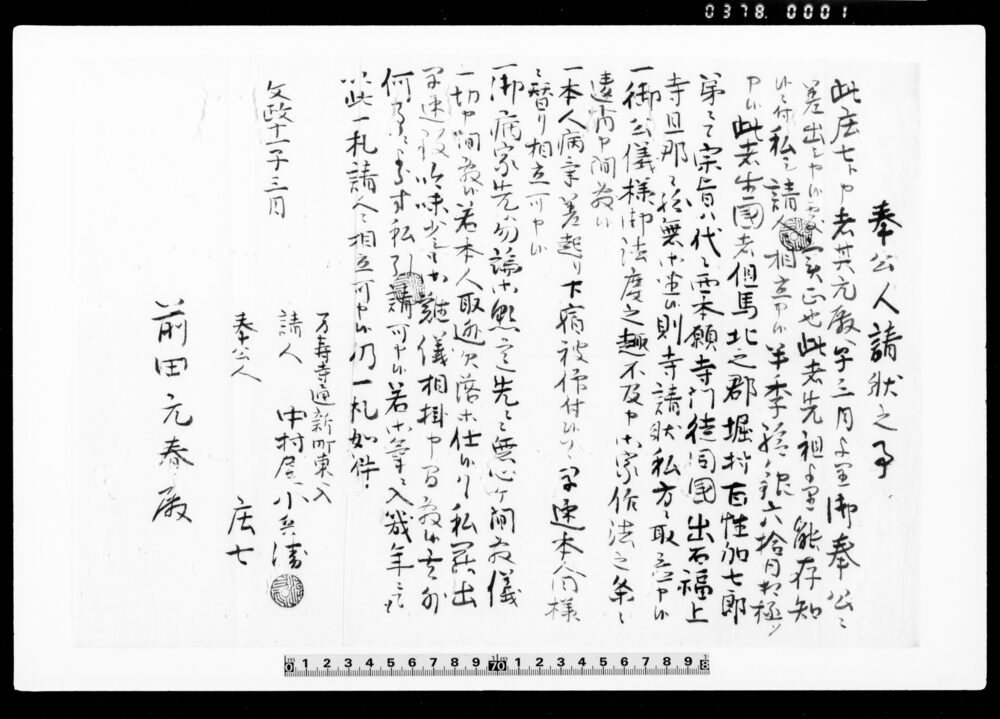 0378. 0001
奉公人請状之事
此庄七ト申者其元殿へ子三月より御奉公ニ
差出シ申処実正也此者先祖より能存知
候ニ付私シ請人相立申候半季給銀六拾目相極メ
申候此者生国者但馬北之郡堀村百性弥七郎
弟ニて宗旨ハ代々西本願寺門徒同国出石福上
寺旦那ニ紛無御座候則寺請状私方ニ取置申候
一御公儀様御法度之趣不及申御家作法之条々
違背申間敷候
一本人病気差起り下宿被仰付候ハヽ早速本人同様
之替り相立可申候
一御病家先勿論御懇意先ニ無心ヶ間敷儀
一切申間敷候若本人取逃欠落等仕候ハヽ私罷出
早速致吟味少シも御難儀相掛申間敷候其外
何事ニ寄す私引請可申候若御気ニ入幾年
以此一札請人ニ相立可申候仍一札如件
文政十一子三月
万寿寺通新町東入
請人 中村屋小兵衛
奉公人 庄七
前田元春殿
0 1 2 3 4 5 6 7 8 9 10 1 2 3 4 5 6 7 8 9 18